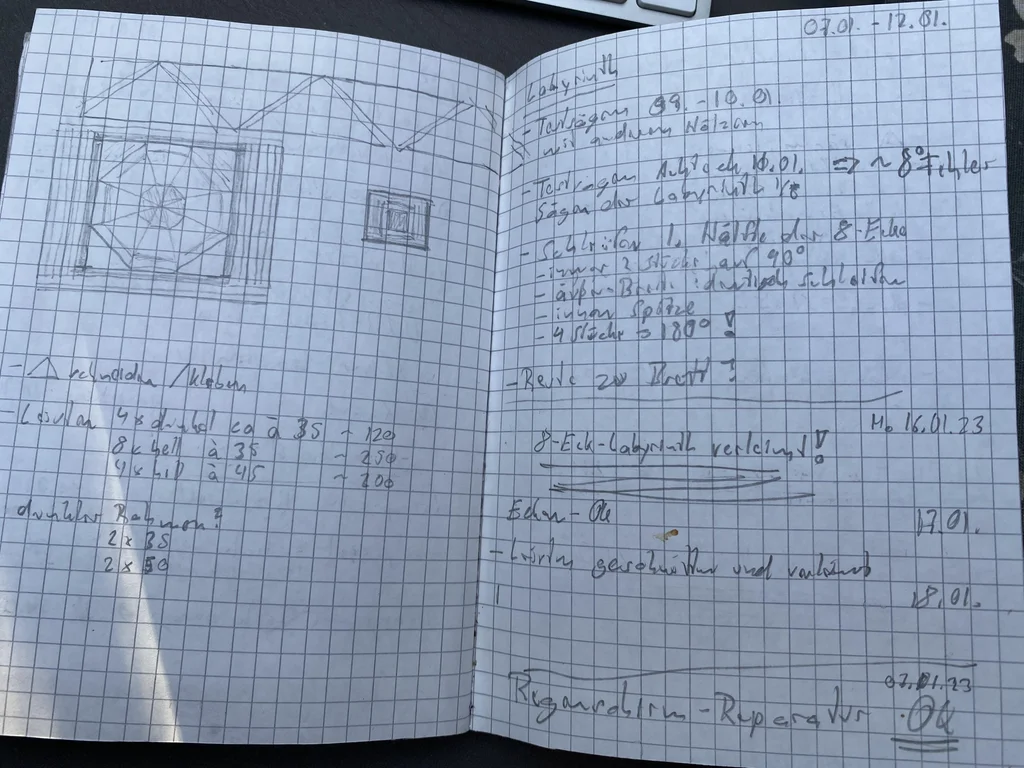 - △ schneiden / kleben
- Leisten 4x dunkel ca à 35 ~ 120
8x hell à 35 ~ 250
4x hell à 45 ~ 200
dunkler Rahmen?
2 x 35
2 x 50
07.01. - 12.01.
Labyrinth
- Testsägen 09. - 10.01
mit anderen Hölzern
- Testsägen Achteck 10.01. => ~ 8° Fehler
Sägen der Labyrinth 1/8
- Schleifen 1. Hälfte der 8-Ecke
- immer 2 Stücke auf 90°
- schleifen
- innen Spitze
- 4 Stücke = 180° !
- Reste zu Brett?
Mo 16.01.23
8-Eck-Labyrinth verleimt!
17.01.
Ecken - OK
- Leisten geschnitten und verleimt
18.01.
07.01.23
Regenschirm - Reparatur OK